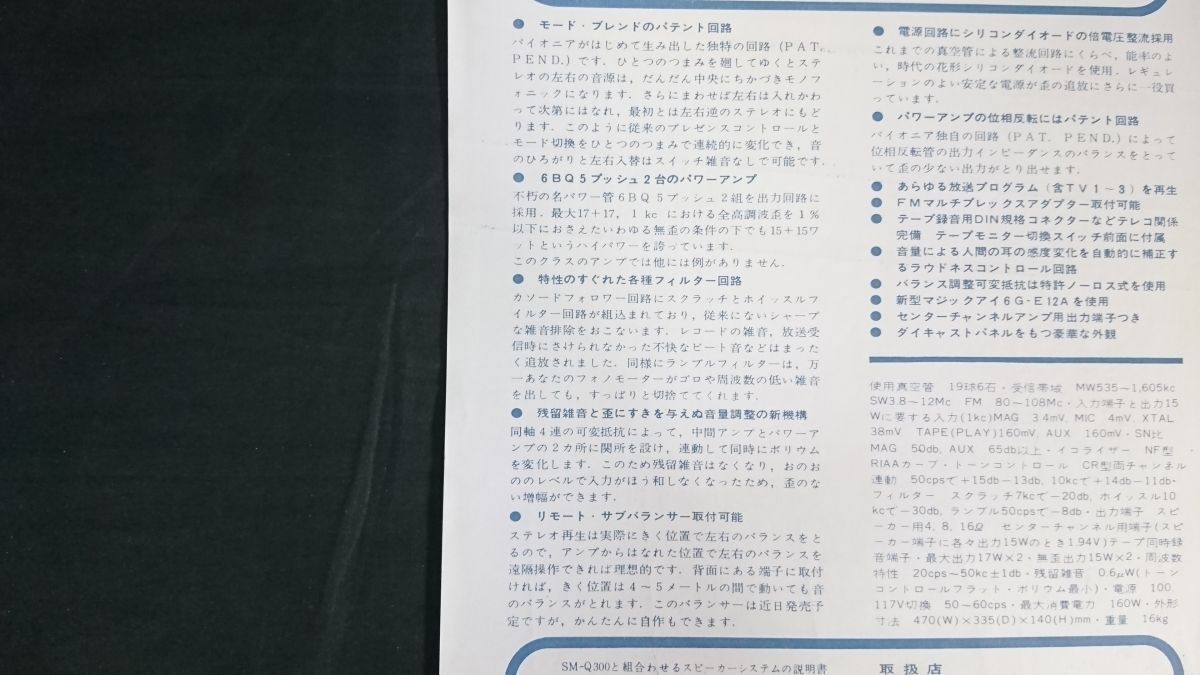 ● モード・ブレンドのパテント回路
パイオニアがはじめて生み出した独特の回路 (PAT.
PEND.) です. ひとつのつまみを廻してゆくとステ
レオの左右の音源は, だんだん中央にちかづきモノフ
ォニックになります. さらにまわせば左右は入れかわ
って次第にはなれ, 最初とは左右逆のステレオにもど
ります. このように従来のプレゼンスコントロールと
モード切換をひとつのつまみで連続的に変化でき, 音
のひろがりと左右入替はスイッチ雑音なしで可能です.
● 6BQ5プッシュ2台のパワーアンプ
不朽の名パワー管6BQ5プッシュ2組を出力回路に
採用. 最大17+17, 1kcにおける全高調波歪を1%
以下におさえたいわゆる無歪の条件の下でも15+15ワ
ットというハイパワーを誇っています.
このクラスのアンプでは他には例がありません.
● 特性のすぐれた各種フィルター回路
カソードフォロワー回路にスクラッチとホイッスルフ
イルター回路が組込まれており, 従来にないシャープ
な雑音排除をおこないます. レコードの雑音, 放送受
信時にさけられなかった不快なビート音などはまった
く追放されました. 同様にランブルフィルターは, 万
一あなたのフォノモーターがゴロや周波数の低い雑音
を出しても, すっぱりと切捨ててくれます.
● 残留雑音と歪にすきを与えぬ音量調整の新機構
同軸4連の可変抵抗によって, 中間アンプとパワーア
ンプの2カ所に関所を設け, 連動して同時にボリウム
を変化します. このため残留雑音はなくなり, おのお
ののレベルで入力がほう和しなくなったため, 歪のな
い増幅ができます.
● リモート・サブバランサー取付可能
ステレオ再生は実際にきく位置で左右のバランスをと
るので, アンプからはなれた位置で左右のバランスを
遠隔操作できれば理想的です. 背面にある端子に取付
ければ, きく位置は4～5メートルの間で動いても音
のバランスがとれます. このバランサーは近日発売予
定ですが, かんたんに自作もできます.
● 電源回路にシリコンダイオードの倍電圧整流採用
これまでの真空管による整流回路にくらべ, 能率のよ
い, 時代の花形シリコンダイオードを使用. レギュレ
ーションのよい安定な電源が歪の追放にさらに一役買
っています.
● パワーアンプの位相反転にはパテント回路
パイオニア独自の回路 (PAT. PEND.) によって
位相反転管の出力インピーダンスのバランスをとって
いて歪の少ない出力がとり出せます.
● あらゆる放送プログラム (含TV1～3) を再生
● FMマルチプレックスアダプター取付可能
● テープ録音用DIN規格コネクターなどテレコ関係
完備 テープモニター切換スイッチ前面に付属
● 音量による人間の耳の感度変化を自動的に補正す
るラウドネスコントロール回路
● バランス調整可変抵抗は特許ノーロス式を使用
● 新型マジックアイ6G-E12Aを使用
● センターチャンネルアンプ用出力端子つき
● ダイキャストパネルをもつ豪華な外観
使用真空管 19球6石・受信帯域 MW535～1,605kc
SW3.8～12Mc FM 80～108Mc・入力端子と出力15
Wに要する入力(1kc)MAG 3.4mV, MIC 4mV, XTAL
38mV TAPE(PLAY)160mV, AUX 160mV・SN比
MAG 50db, AUX 65db以上・イコライザー NF型
RIAAカーブ・トーンコントロール CR型両チャンネル
連動 50cpsで+15db-13db, 10kcで+14db-11db・
フィルター スクラッチ7kcで-20db, ホイッスル10
kcで-30db, ランブル50cpsで-8db・出力端子 スピ
ーカー用4, 8, 16Ω センターチャンネル用端子(スピ
ーカー端子に各々出力15Wのとき1.94V)テープ同時録
音端子・最大出力17W×2・無歪出力15W×2・周波数
特性 20cps～50kc±1db・残留雑音 0.6μW(トーン
コントロールフラット・ボリウム最小)・電源 100,
117V切換 50～60cps・最大消費電力 160W・外形
寸法 470(W)×335(D)×140(H)mm・重量 16kg
SM-Q300と組合わせるスピーカーシステムの説明書
取扱店